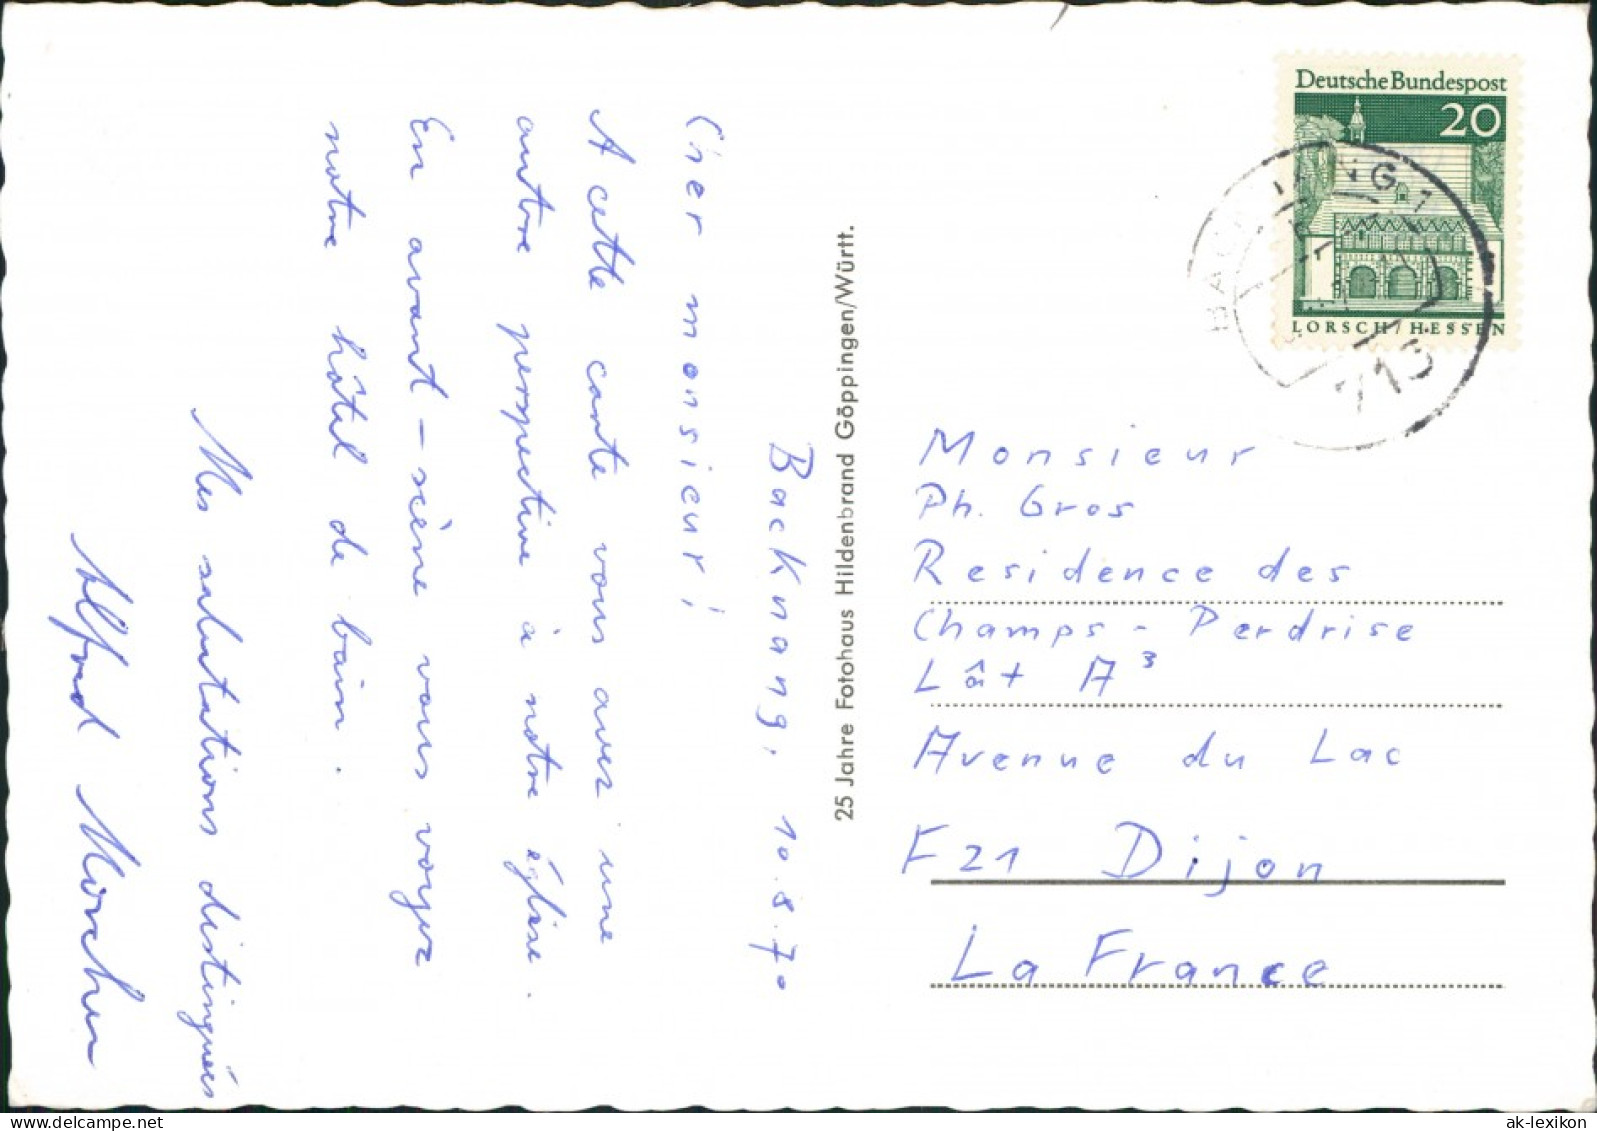 Backnang, 10.8.70
Cher monsieur!
A cette carte vous avez une
autre perspective à notre église.
En avant-scène vous voyez
notre hôtel de bain.
Mes salutations distinguées
Alfred
25 Jahre Fotohaus Hildenbrand Göppingen/Württ.
Deutsche Bundespost
20
LORSCH/HESSEN
715
Monsieur
Ph. Gros
Residence des
Champs - Perdrise
Lât A³
Avenue du Lac
F21 Dijon
La France
ak-lexikon